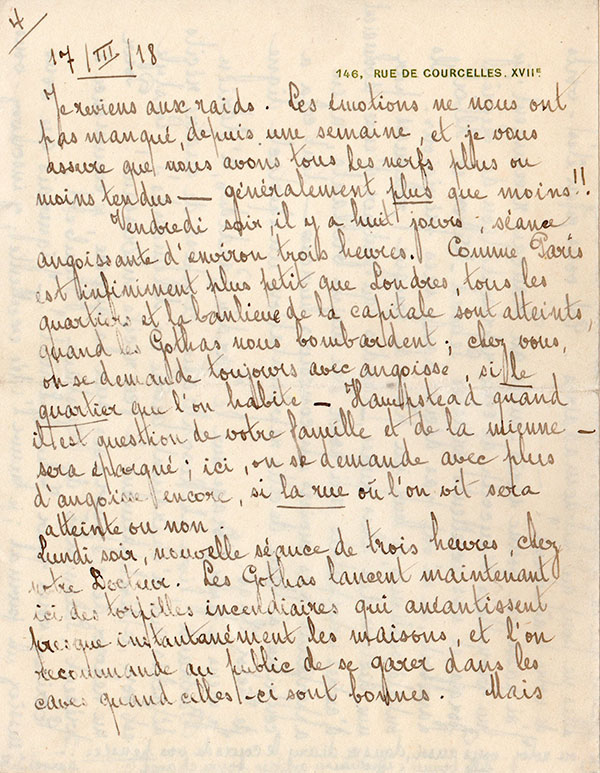 4
17/III/18
146, RUE DE COURCELLES. XVIIE
Je reviens aux raids. Les émotions ne nous ont
pas manqué, depuis une semaine, et je vous
assure que nous avons tous les nerfs plus ou
moins tendus — généralement plus que moins!!
Vendredi soir, il y a huit jours, séance
angoissante d'environ trois heures. Comme Paris
est infiniment plus petit que Londres, tous les
quartiers et la banlieue de la capitale sont atteints,
quand les Gothas nous bombardent; chez vous,
on se demande toujours avec angoisse, si le
quartier que l'on habite — Hampstead quand
il est question de votre famille et de la mienne —
sera épargné; ici, on se demande avec plus
d'angoisse encore, si la rue où l'on vit sera
atteinte ou non.
Lundi soir, nouvelle séance de trois heures, chez
notre Docteur. Les Gothas lancent maintenant
ici des torpilles incendiaires qui anéantissent
presque instantanément les maisons, et l'on
recommande au public de se garer dans les
caves quand celles-ci sont bonnes. Mais